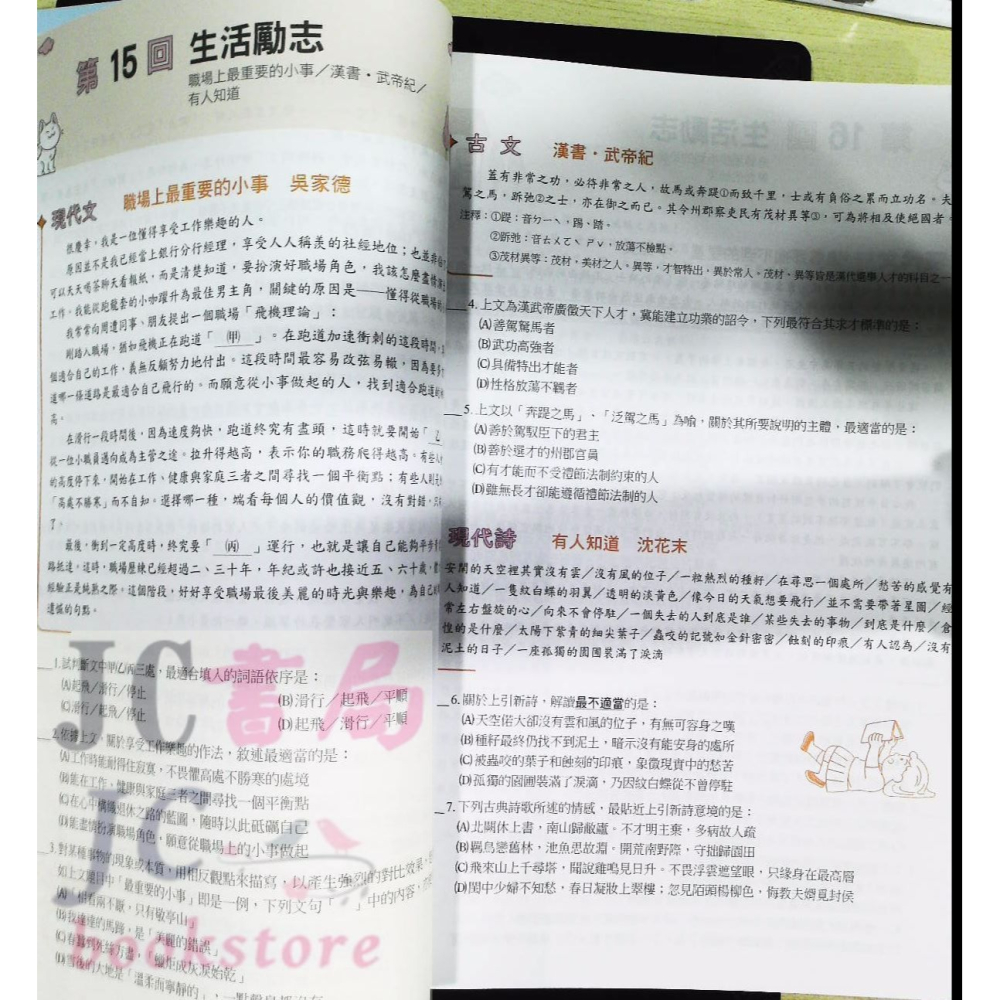 第 15 回 生活勵志
職場上最重要的小事／漢書・武帝紀／
有人知道
現代文 職場上最重要的小事 吳家德
很慶幸，我是一位懂得享受工作樂趣的人。
原因並不是我已經當上銀行分行經理，享受人人稱羨的社經地位；也並非
可以天天喝茶聊天看報紙，而是清楚知道，要扮演好職場角色，我該怎麼盡情
工作。我能從跑龍套的小咖躍升為最佳男主角，關鍵的原因是——懂得從職場的
我常常向周遭同事、朋友提出一個職場「飛機理論」：
剛踏入職場，猶如飛機正在跑道「（甲）」。在跑道加速衝刺的這段時間，
個適合自己的工作，義無反顧努力地付出。這段時間最容易改弦易轍，因為要
道哪一條道路是最適合自己飛行的。而願意從小事做起的人，找到適合跑道的
高。
在滑行一段時間後，因為速度夠快，跑道終究有盡頭，這時就要開始「乙
從一位小職員邁向成為主管之途。拉升得越高，表示你的職務爬得越高。有些人
的高度停下來，開始在工作、健康與家庭三者之間尋找一個平衡點；有些人則
「高處不勝寒」而不自知。選擇哪一種，端看每個人的價值觀，沒有對錯，只
了。
最後，衝到一定高度時，終究要「（丙）」運行，也就是讓自己能夠平步
路抵達。這時，職場歷練已經超過二、三十年，年紀或許也接近五、六十歲，
經驗正是純熟之際。這個階段，好好享受職場最後美麗的時光與樂趣，為自己
遺憾的句點。
1.試判斷文中甲乙丙三處，最適合填入的詞語依序是：
(A)起飛／滑行／停止 (B)滑行／起飛／平順
(C)滑行／起飛／停止 (D)起飛／滑行／平順
2.依據上文，關於享受工作樂趣的作法，敘述最適當的是：
(A)工作時能耐得住寂寞，不畏懼高處不勝寒的處境
(B)能在工作、健康與家庭三者之間尋找一個平衡點
(C)在心中構織退休之路的藍圖，隨時以此砥礪自己
(D)能盡情扮演職場角色，願意從職場上的小事做起
3.對某種事物的現象或本質，用相反觀點來描寫，以產生強烈的對比效果，
如上文題目中「最重要的小事」即是一例，下列文句「 」中的內容，
(A)「相看兩不厭，只有敬亭山」
(B)我達達的馬蹄，是「美麗的錯誤」
(C)春蠶到死絲方盡，「蠟炬成灰淚始乾」
(D)當後的大地是「溫柔而寧靜的」，一點聲息都沒有
古文 漢書・武帝紀
蓋有非常之功，必待非常之人，故馬或奔踶①而致千里，士或有負俗之累而立功名。夫
駕之馬，跅弛②之士，亦在御之而已。其令州郡察吏民有茂材異等③，可為將相及使絕國者。
注釋：①踶：音ㄉㄧˋ，踢、踏。
②跅弛：音ㄊㄨㄛˋ ㄕˇ，放蕩不檢點。
③茂材異等：茂材，美材之人。異等，才智特出，異於常人。茂材、異等皆是漢代選舉人才的科目之一
4.上文為漢武帝廣徵天下人才，冀能建立功業的詔令，下列最符合其求才標準的是：
(A)善駕駑馬者
(B)武功高強者
(C)具備特出才能者
(D)性格放蕩不羈者
5.上文以「奔踶之馬」、「泛駕之馬」為喻，關於其所要說明的主體，最適當的是：
(A)善於駕馭臣下的君主
(B)善於選才的州郡官員
(C)有才能而不受禮節法制約束的人
(D)雖無長才卻能遵循禮節法制的人
現代詩 有人知道 沈花末
安閒的天空裡其實沒有雲／沒有風的位子／一粒熱烈的種籽／在尋思一個處所／愁苦的感覺有
人知道／一隻紋白蝶的羽翼／透明的淡黃色／像今日的天氣想要飛行／並不需要帶著星圖／經
常左右盤旋的心／向來不會停駐／一個失去的人到底是誰／某些失去的事物／到底是什麼／倉
惶的是什麼／太陽下紫青的細尖葉子／蟲咬的記號如金針密密／蝕刻的印痕／有人認為／沒有
泥土的日子／一座孤獨的園囿裝滿了淚滴
6.關於上引新詩，解讀最不適當的是：
(A)天空偌大卻沒有雲和風的位子，有無可容身之嘆
(B)種籽最終仍找不到泥土，暗示沒有能安身的處所
(C)被蟲咬的葉子和蝕刻的印痕，象徵現實中的愁苦
(D)孤獨的園囿裝滿了淚滴，乃因紋白蝶從不曾停駐
7.下列古典詩歌所述的情感，最貼近上引新詩意境的是：
(A)北闕休上書，南山歸敝廬。不才明主棄，多病故人疏
(B)羈鳥戀舊林，池魚思故淵。開荒南野際，守拙歸園田
(C)飛來山上千尋塔，聞說雞鳴見日升。不畏浮雲遮望眼，只緣身在最高層
(D)閨中少婦不知愁，春日凝妝上翠樓；忽見陌頭楊柳色，悔教夫婿覓封侯
JC書局
JC
bookstore